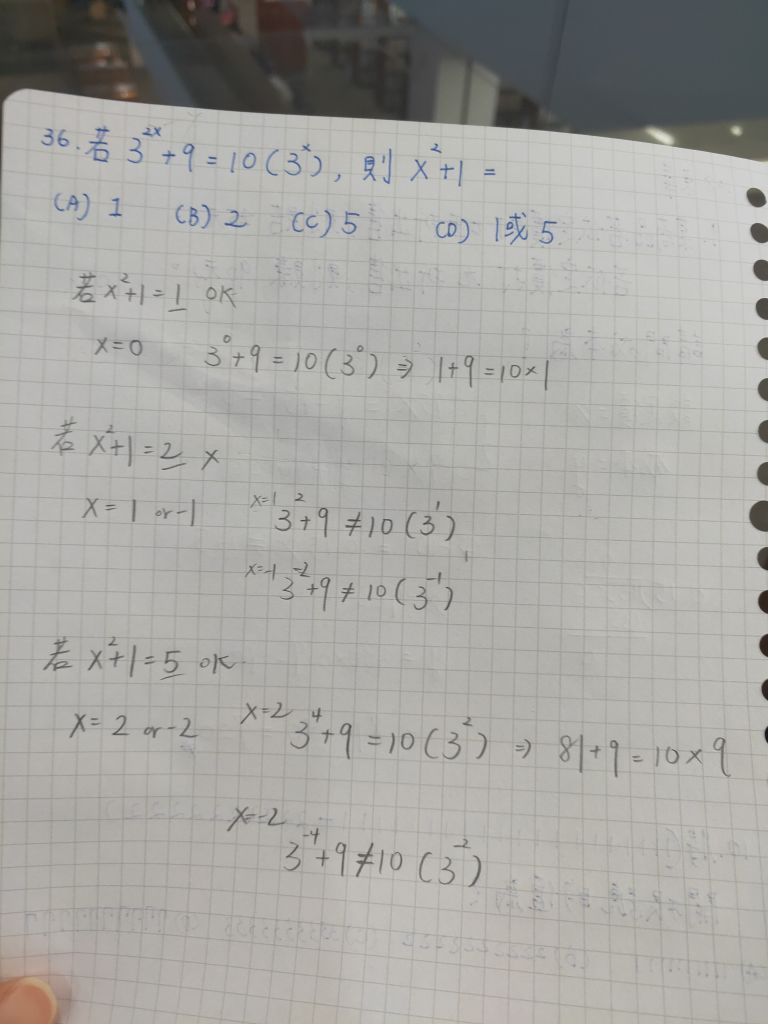 36. 若 3^{2x} + 9 = 10 (3^x), 則 x^2+1 =
(A) 1 (B) 2 (C) 5 (D) 1或 5
若 x^2+1 = 1 OK
x=0 3^0+9 = 10 (3^0) ⇒ 1+9 = 10×1
若 x^2+1 = 2 ×
x = 1 or -1 x=1 3^2+9 ≠ 10 (3^1)
x=-1 3^{-2}+9 ≠ 10 (3^{-1})
若 x^2+1 = 5 OK
x = 2 or -2 x=2 3^4+9 = 10 (3^2) ⇒ 81+9 = 10×9
x=-2
3^{-4}+9 ≠ 10 (3^{-2})